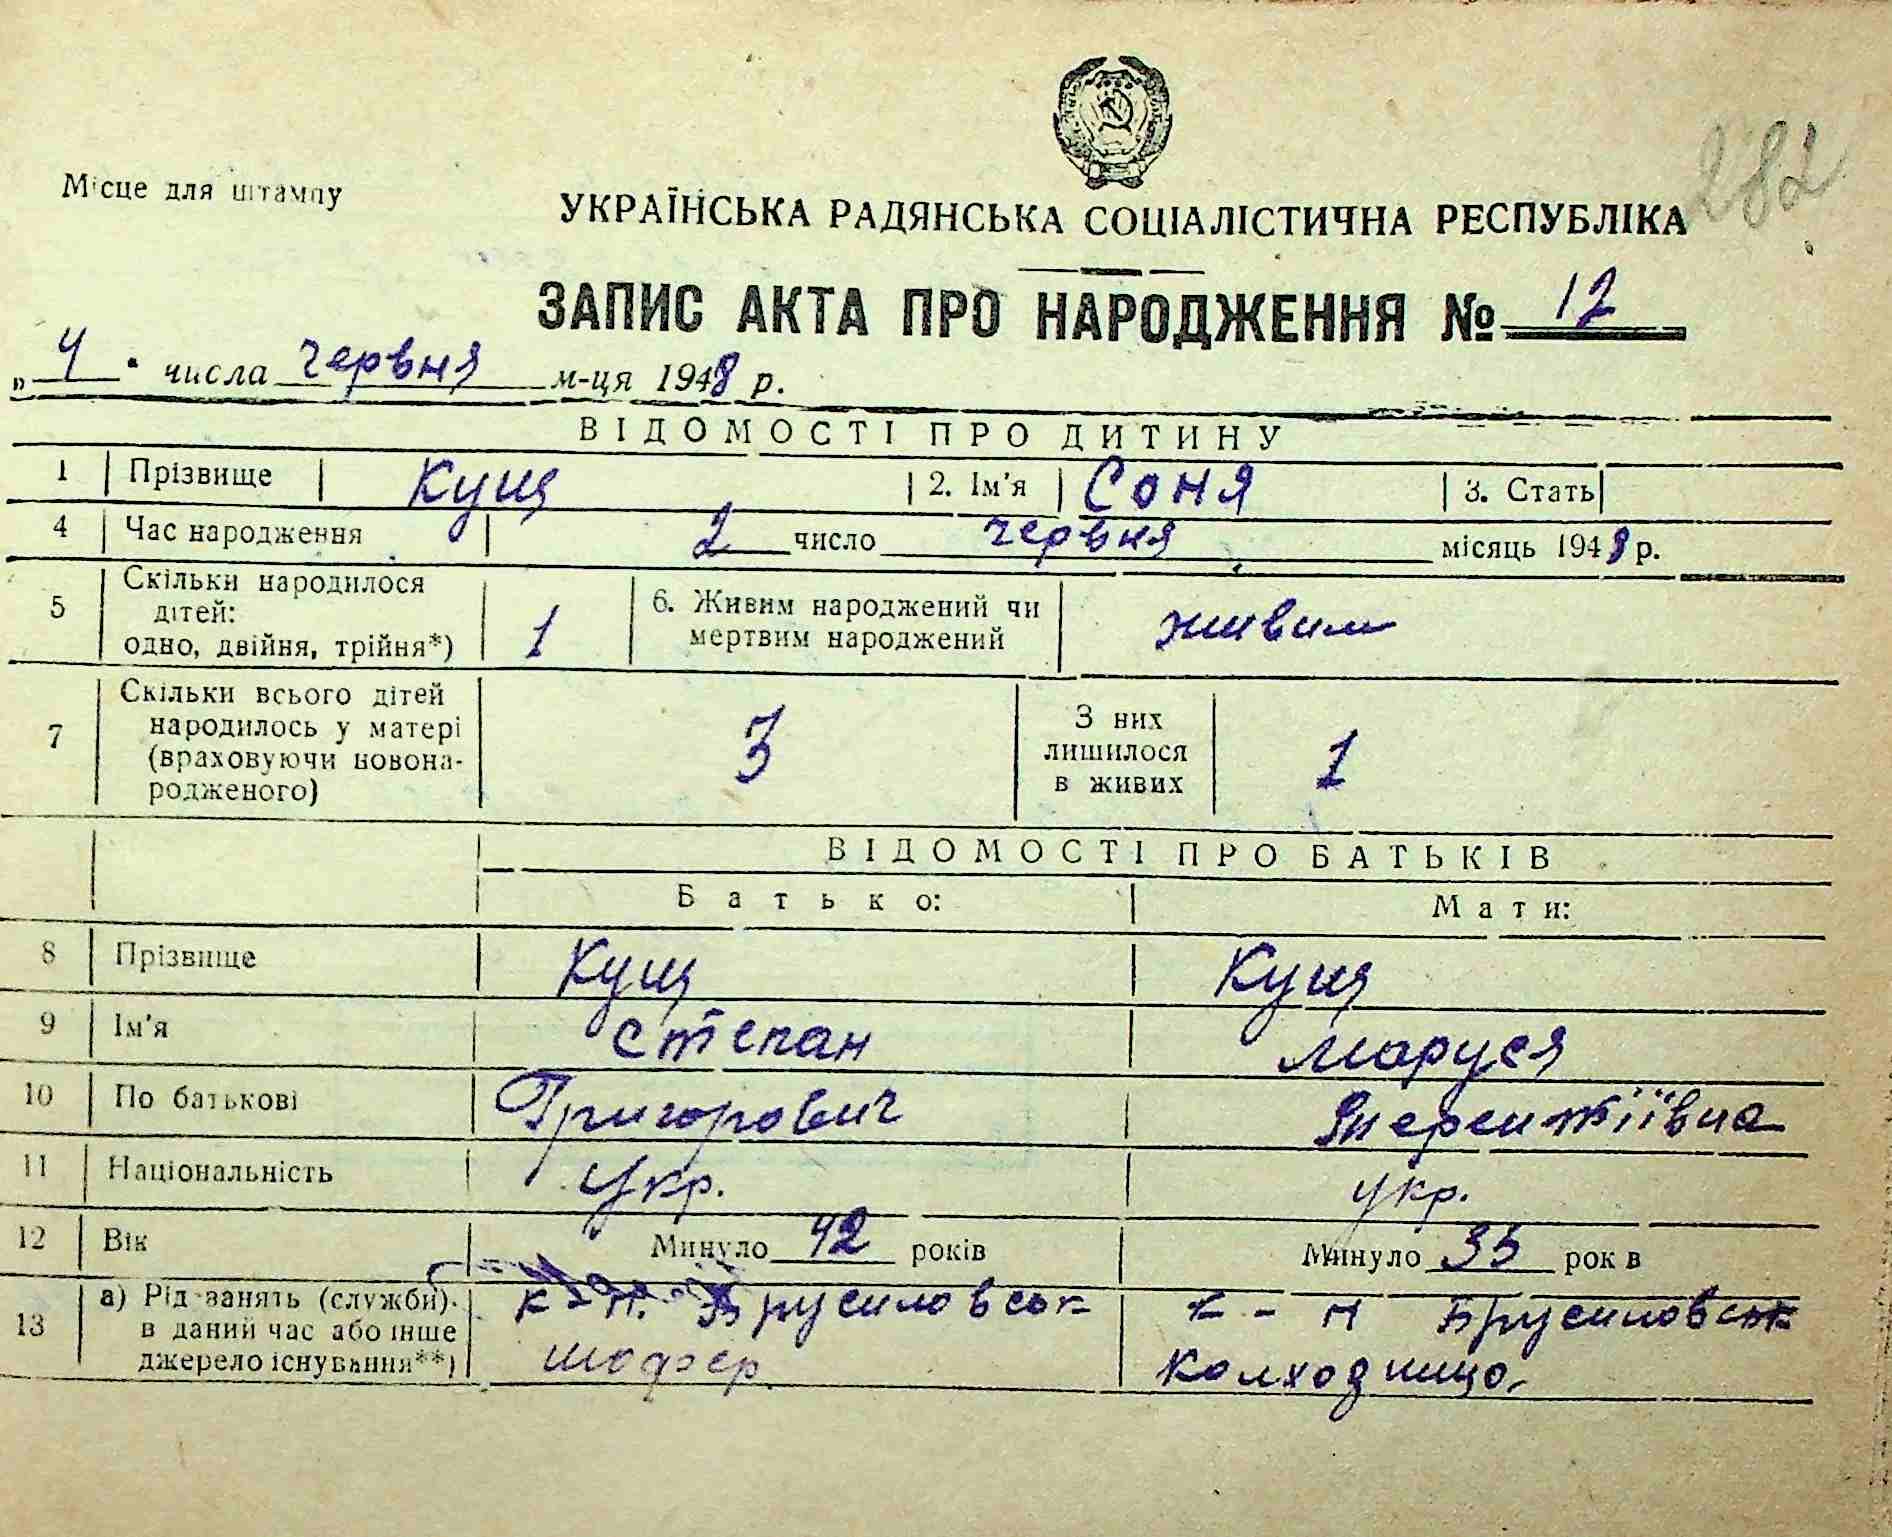 282
Місце для штампу
УКРАЇНСЬКА РАДЯНСЬКА СОЦІАЛІСТИЧНА РЕСПУБЛІКА
ЗАПИС АКТА ПРО НАРОДЖЕННЯ № 12
„ 4 " числа червня м-ця 1948 р.
ВІДОМОСТІ ПРО ДИТИНУ
1 Прізвище Кущ 2. Ім'я Соня 3. Стать
4 Час народження 2 число червня місяць 1948 р.
5 Скільки народилося
дітей:
одно, двійня, трійня*) 1
6. Живим народжений чи
мертвим народжений живим
7 Скільки всього дітей
народилось у матері
(враховуючи новона-
родженого) 3
З них
лишилося
в живих 1
ВІДОМОСТІ ПРО БАТЬКІВ
Батько: Мати:
8 Прізвище Кущ Кущ
9 Ім'я Степан Маруся
10 По батькові Григорович
11 Національність Укр. укр.
12 Вік Минуло 42 років Минуло 35 рок в
13 а) Рід занять (служби)
в даний час або інше
джерело існування**)
Брусиловськ
шофер
Брусиловськ